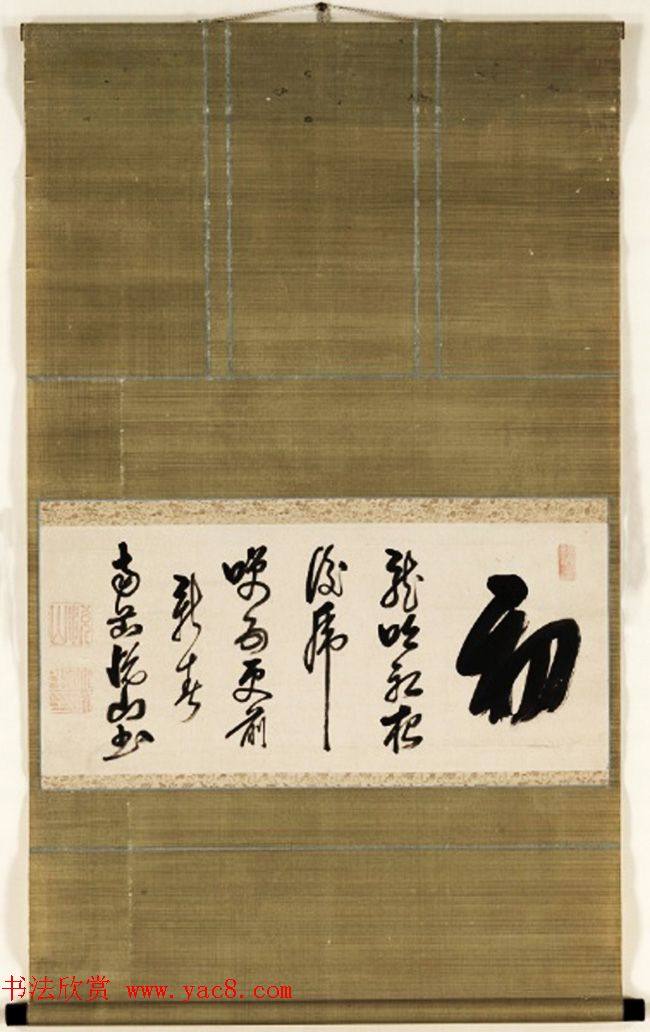 初
龍吟初夜
後虎
嘯五更前
新春
南岳悅山書
书法欣赏 www.yac8.com